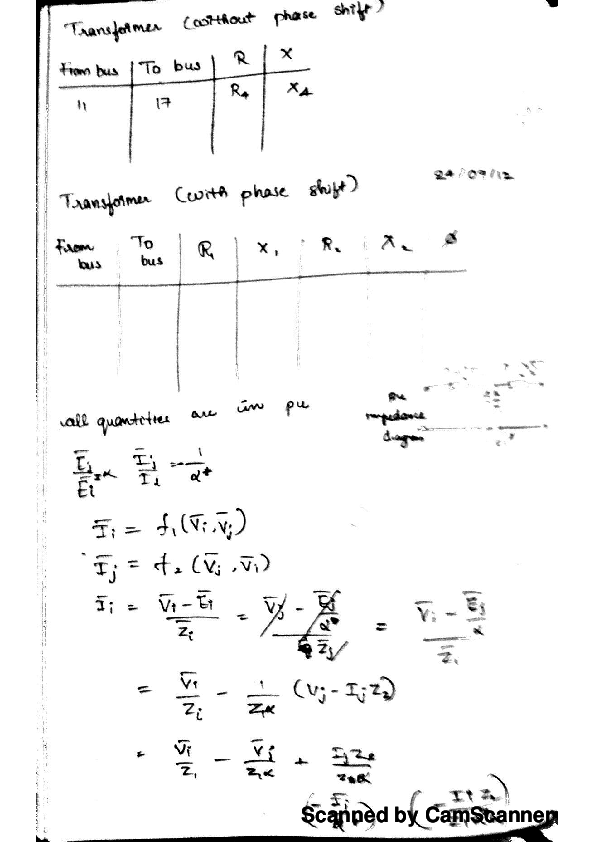 Transformer (without phase shift)
From bus | To bus | R | X
11 | 17 | R4 | X4
24/09/12
Transformer (with phase shift)
From bus | To bus | R1 | X1 | R2 | X2 | ø
all quantities are in pu
impedance
diagram
Ēj/Ēi = α Īj/Īi = -1/α*
Īi = f1(V̄i, V̄j)
Īj = f2(V̄j, V̄i)
Īi = (V̄i - Ēi)/Z̄i = = (V̄i - Ēj/α)/Z̄1
= V̄i/Zi - 1/Z1α (Vj - IjZ2)
= V̄i/Z1 - V̄j/Z1α + IjZ2/Z1α
Scanned by CamScanner